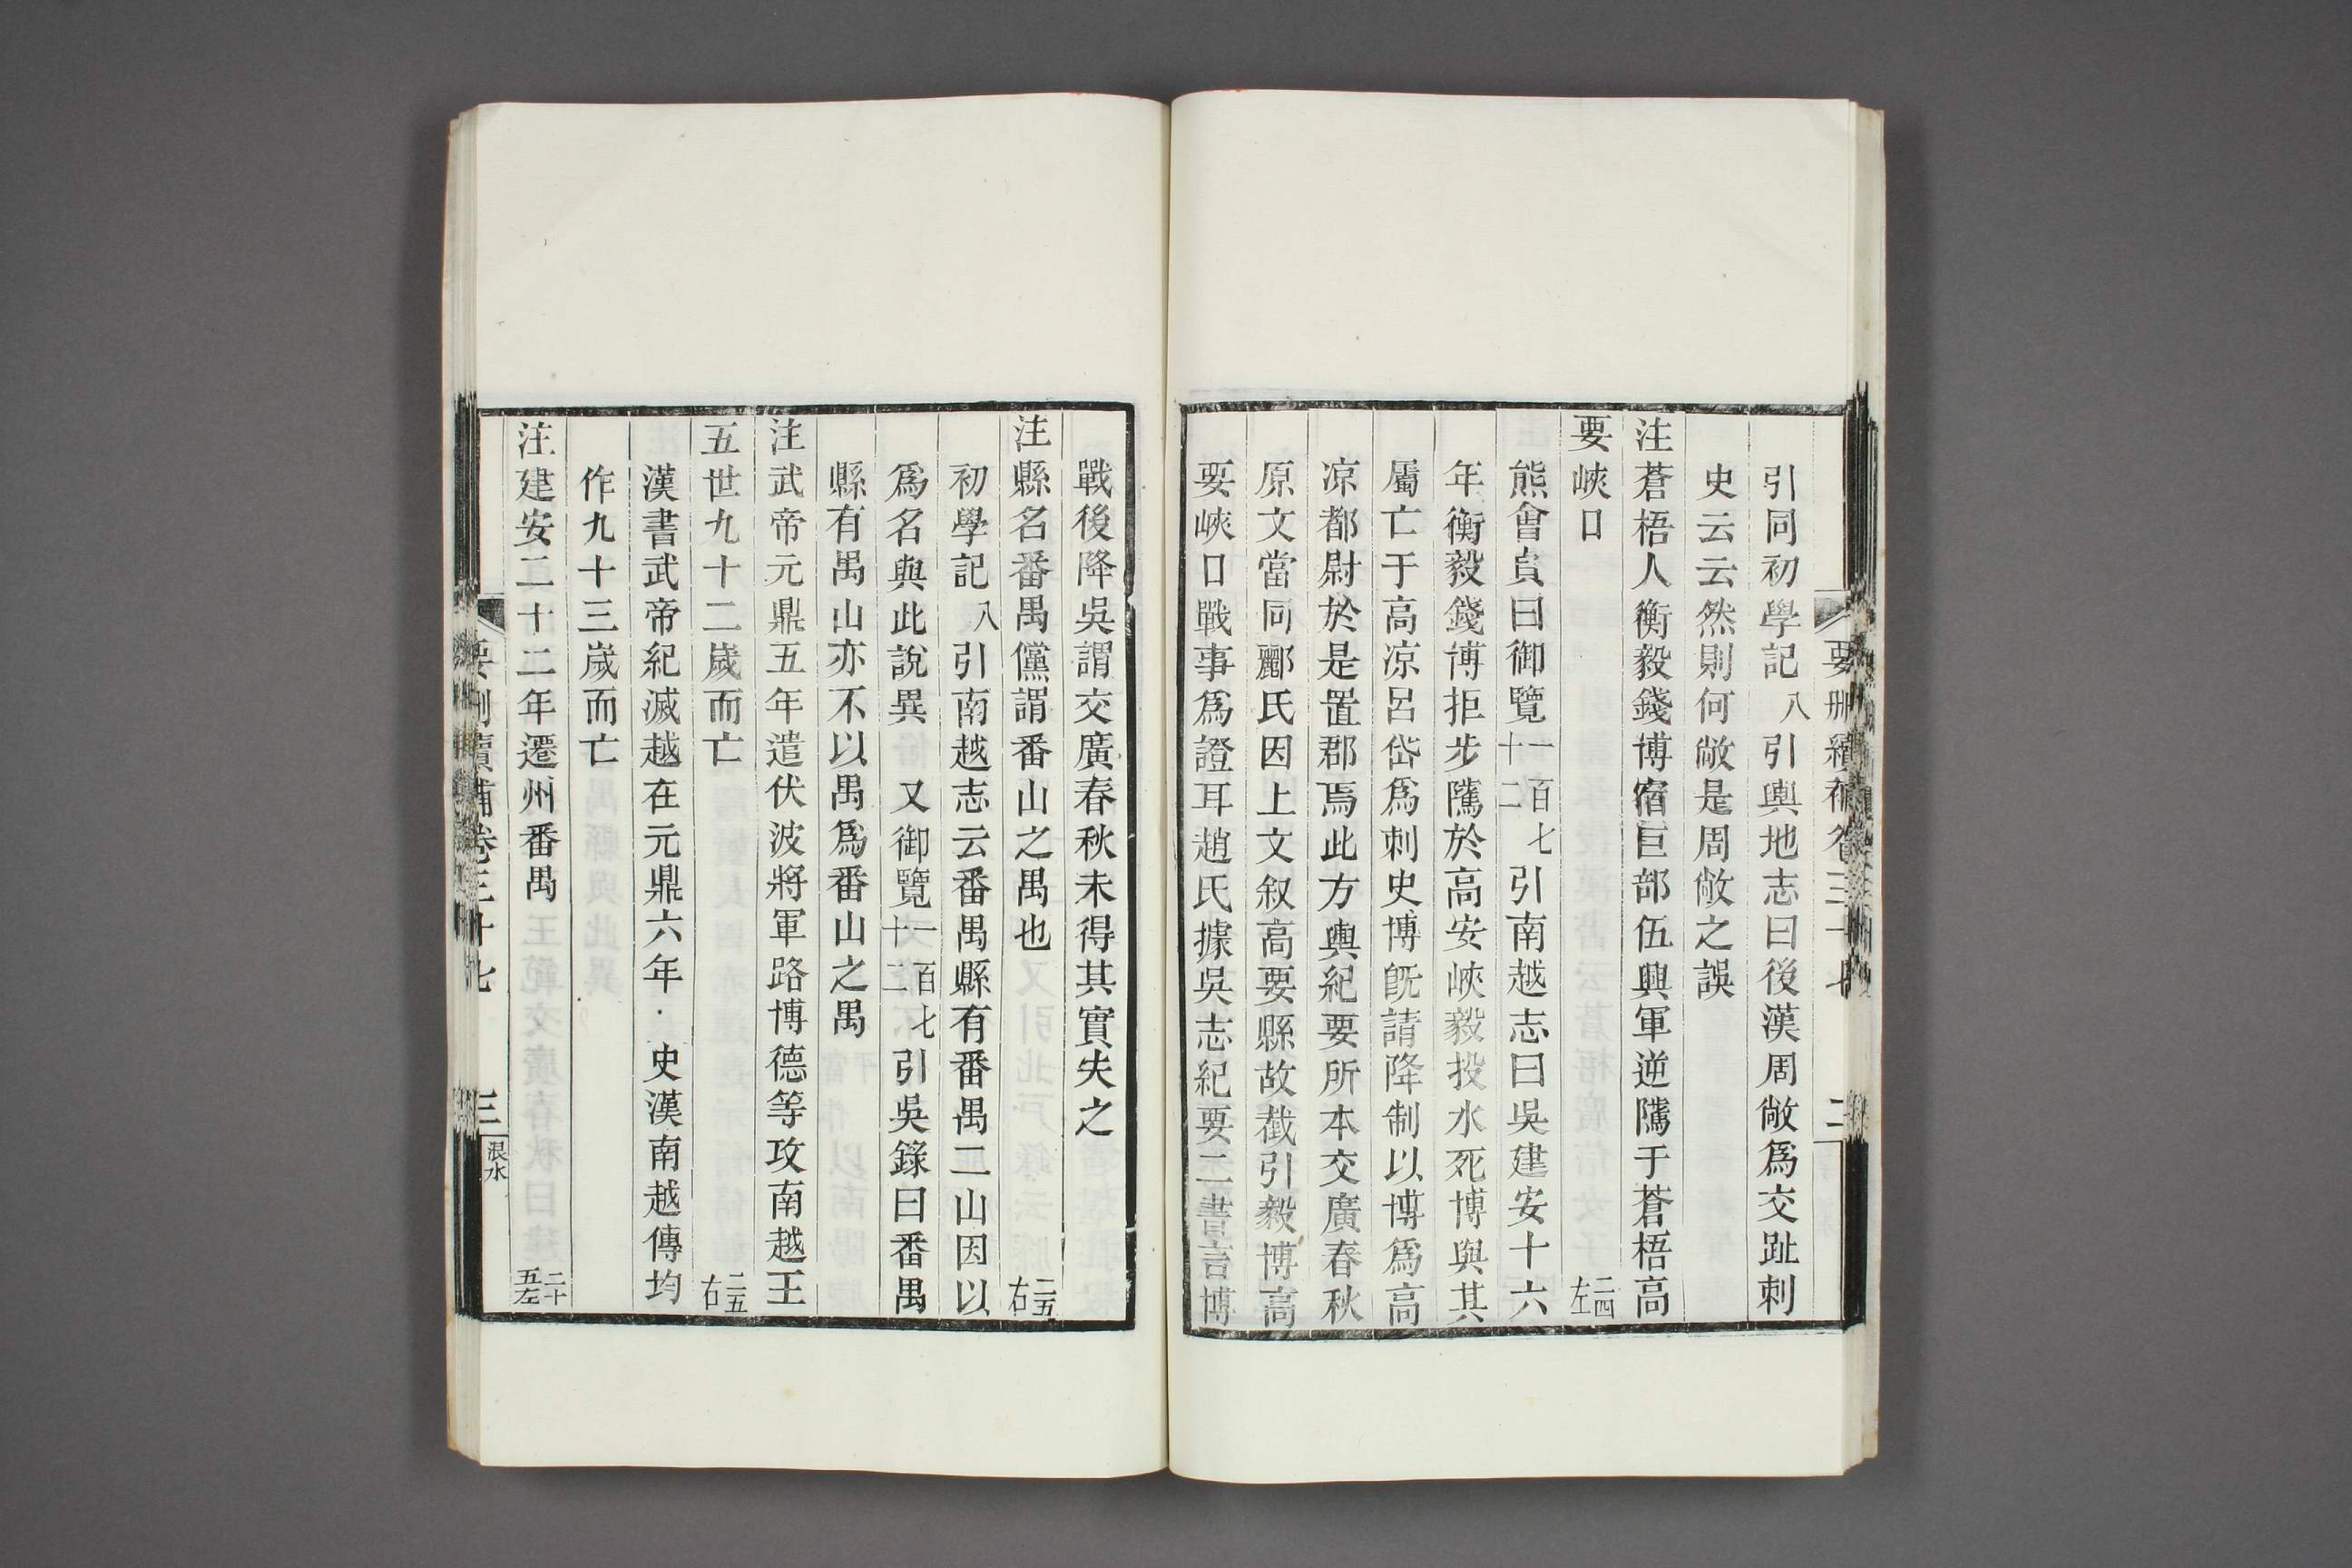 引同初學記八引輿地志曰後漢周敞爲交趾刺
史云云然則何敞是周敞之誤
注蒼梧人衡毅錢博宿巨部伍興軍逆隲于蒼梧高
要峽口二四左
熊會貞曰御覽一百七十二引南越志曰吳建安十六
年衡毅錢博拒步隲於高安峽毅投水死博與其
屬亡于高凉呂岱爲刺史博旣請降制以博爲高
凉都尉於是置郡焉此方輿紀要所本交廣春秋
原文當同酈氏因上文叙高要縣故截引毅博高
要峽口戰事爲證耳趙氏據吳志紀要二書言博
戰後降吳謂交廣春秋未得其實失之
注縣名番禺儻謂番山之禺也二五右
初學記八引南越志云番禺縣有番禺二山因以
爲名與此說異 又御覽一百七十二引吳錄曰番禺
縣有禺山亦不以禺爲番山之禺
注武帝元鼎五年遣伏波將軍路博德等攻南越王
五世九十二歲而亡二五右
漢書武帝紀滅越在元鼎六年·史漢南越傳均
作九十三歲而亡
注建安二十二年遷州番禺二十五左
要刪續補卷三十七 三 泿水